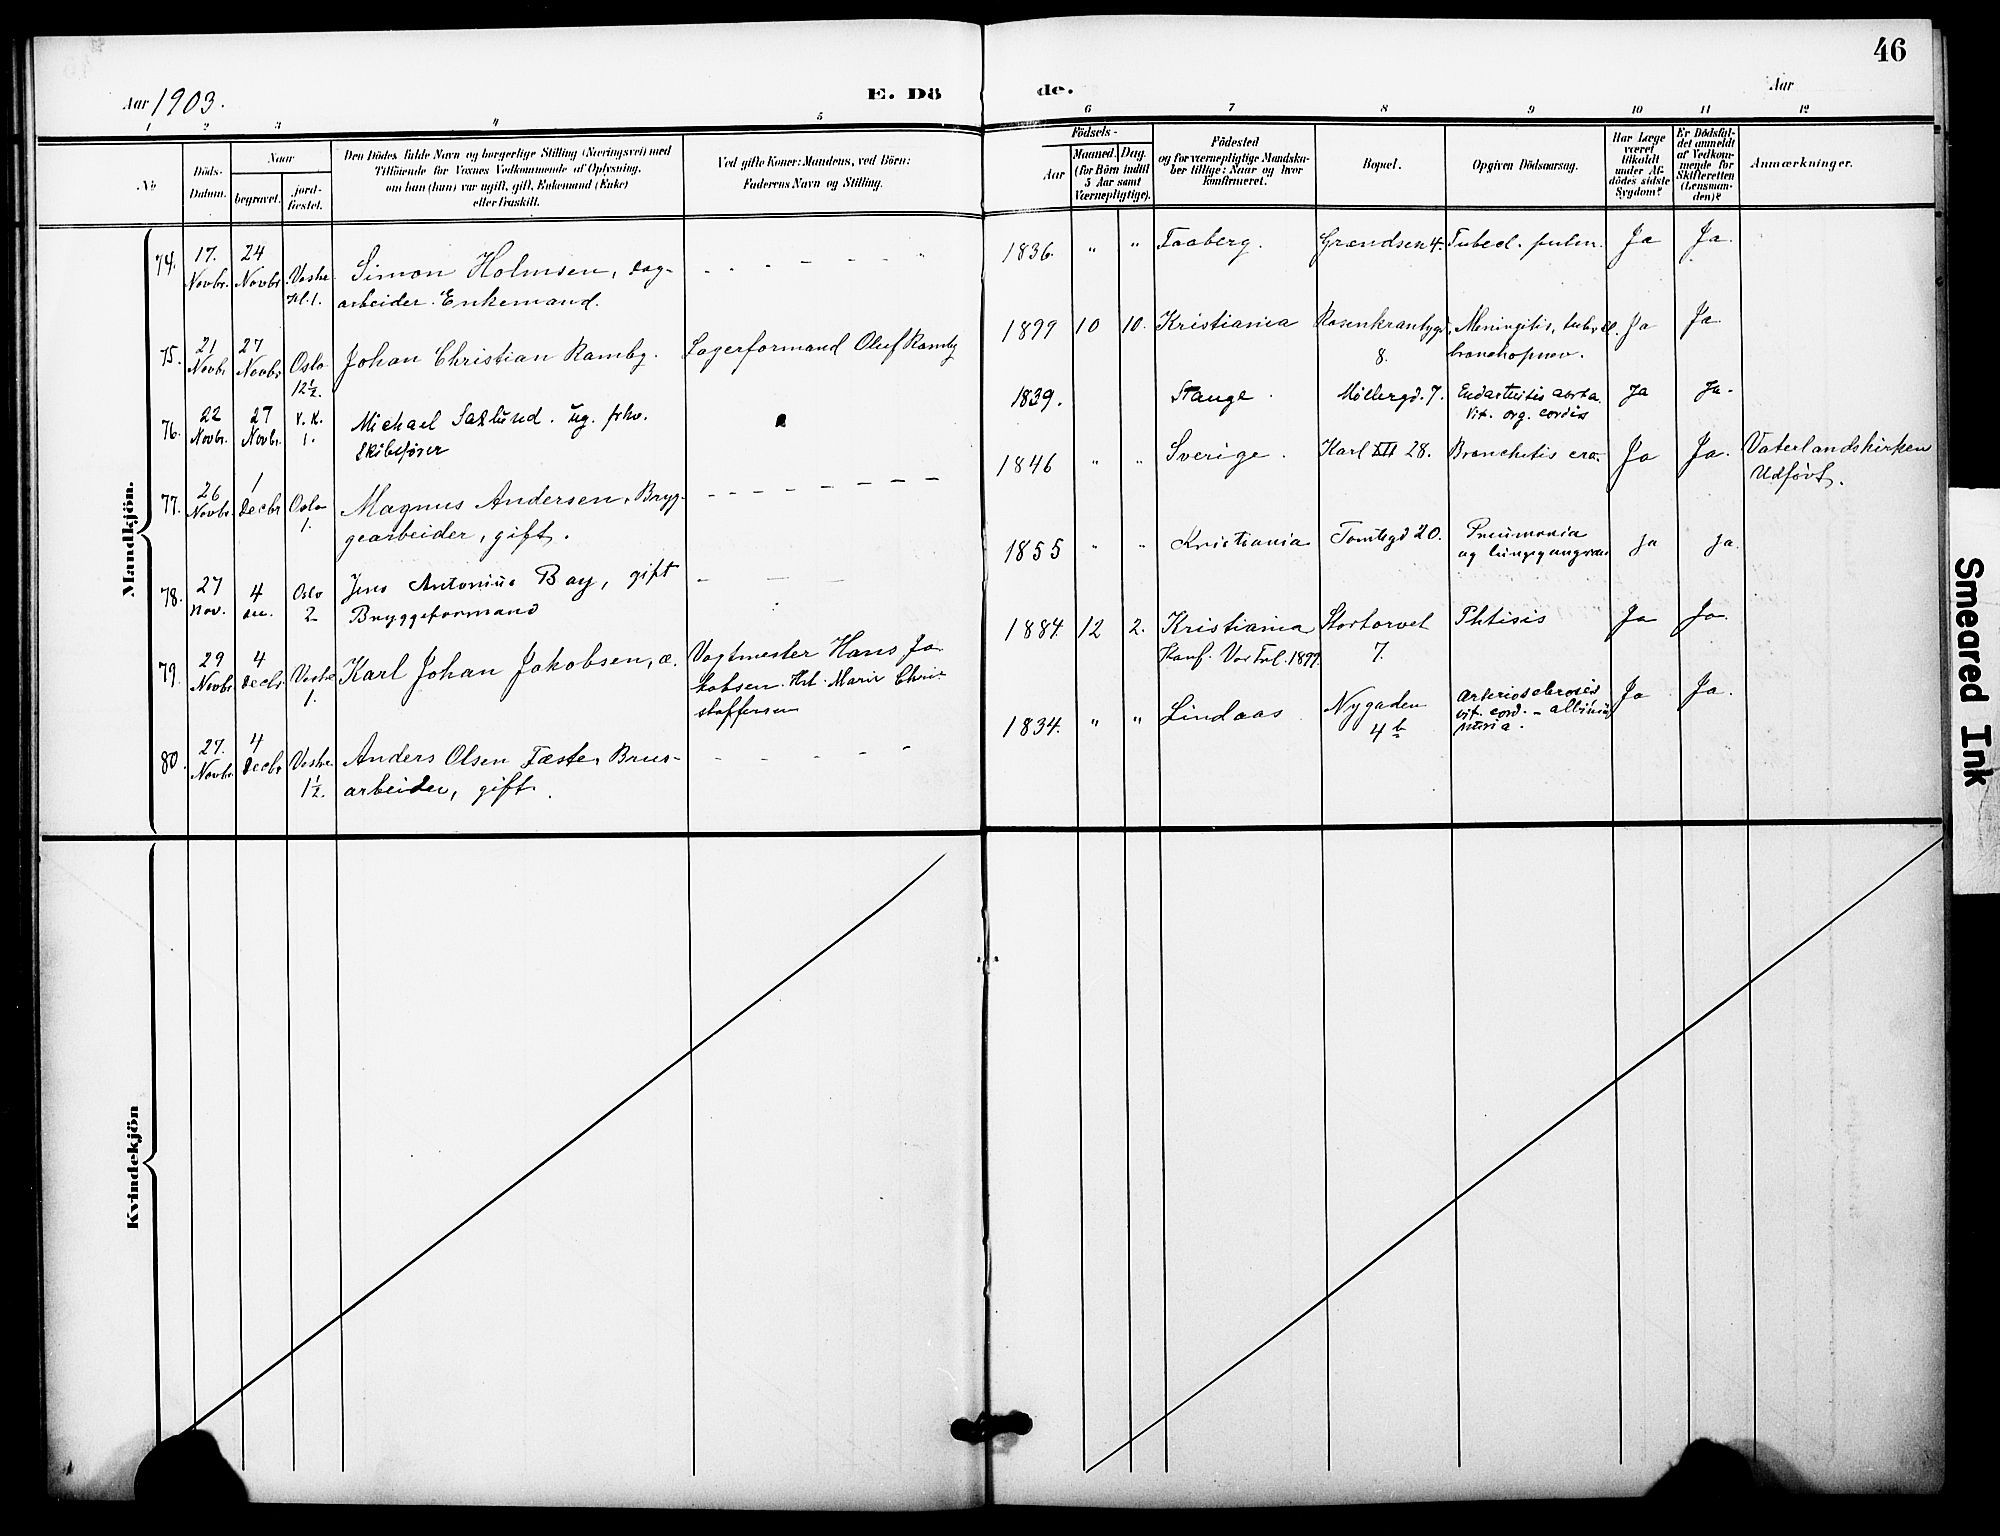 46
Aar 1903.
E. Dö
de.
Aar
1 2 3 4 5
6 7 8 9 10 11 12
No
Döds-
Datum.
Naar
begravet.
jord-
fæstet.
Den Dödes fulde Navn og borgerlige Stilling (Næringsvei) med
Tilföiende for Voxnes Vedkommende af Oplysning,
om han (hun) var ugift, gift, Enkemand (Enke)
eller fraskilt.
Ved gifte Koner: Mandens, ved Börn:
Faderens Navn og Stilling.
Födsels-
Aar
Maaned.
Dag.
(for Börn indtil
5 Aar samt
Værnepligtige).
Födested
og for værnepligtige Mandska-
ber tillige: Naar og hvor
konfirmeret.
Bopæl.
Opgiven Dödsaarsag.
Har Læge
været
tilkaldt
under Af-
dödes sidste
Sygdom?
Er Dödsfal-
det anmeldt
af Vedkom-
mende for
Skifteretten
(Lensman-
den)?
Anmærkninger.
Mandkjön.
74. 17. Novbr. 24 Novbr. Vestre kl. 1. Simon Holmsen, dag-
arbeider. Enkemand.
1836. " " Faaberg. Grændsen 4. Tubecl. pulm. Ja Ja.
75. 21 Novbr. 27 Novbr. Oslo 12½. Johan Christian Ramby. Lagerformand Oluf Ramby
1899 10 10. Kristiania 8. Meningitis, tuberel.
bronchopnev. Ja Ja
76. 22 Novbr. 27 Novbr. V. K. 1. Michael Saxlund. ug. frhv.
Skibsfører
1839. Stange. Møllergd. 7. Endarteritis aorta
Vit. org. cordis Ja Ja.
77. 26 Novbr. 1 Decbr Oslo 1. Magnus Andersen, Bryg-
gearbeider, gift.
1846 " " Sverige. Karl XII 28. Bronchitis Ja Ja. Vaterlandskirken
Udført.
78. 27 Nov. 4 Oslo 2 Jens Antonius Bay, gift
Bryggeformand
1855 " " Kristiania Tomtegd 20. Pneumonia
og Ja Ja.
79. 29 Novbr. 4 Decbr. Vestre 1. Karl Johan Jakobsen, Vagtmester Hans Ja-
kobsen. Marie Chri-
stoffersen
1884. 12 2. Kristiania Stortorvet 7. Phtisis Ja Ja.
Konf. Vor Frl. 1899.
80. 27. Novbr. 4 Decbr Vestre 1½. Anders Olsen Fæste, Brus-
arbeider, gift.
1834. " " Lindaas Nygaden 4b Arteriosclerosis
vit. cord. - albumi-
nuria. Ja Ja.
Kvindekjön
Smeared Ink